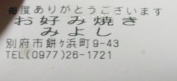 毎度ありがとうございます
お好み焼き
みよし
別府市餅ヶ浜町9-43
TEL(0977)26-1721